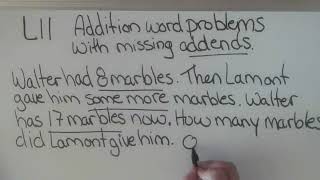 L11 Addition word problems
with missing addends.
Walter had 8 marbles. Then Lamont
gave him some more marbles. Walter
has 17 marbles now. How many marbles
did Lamont give him.